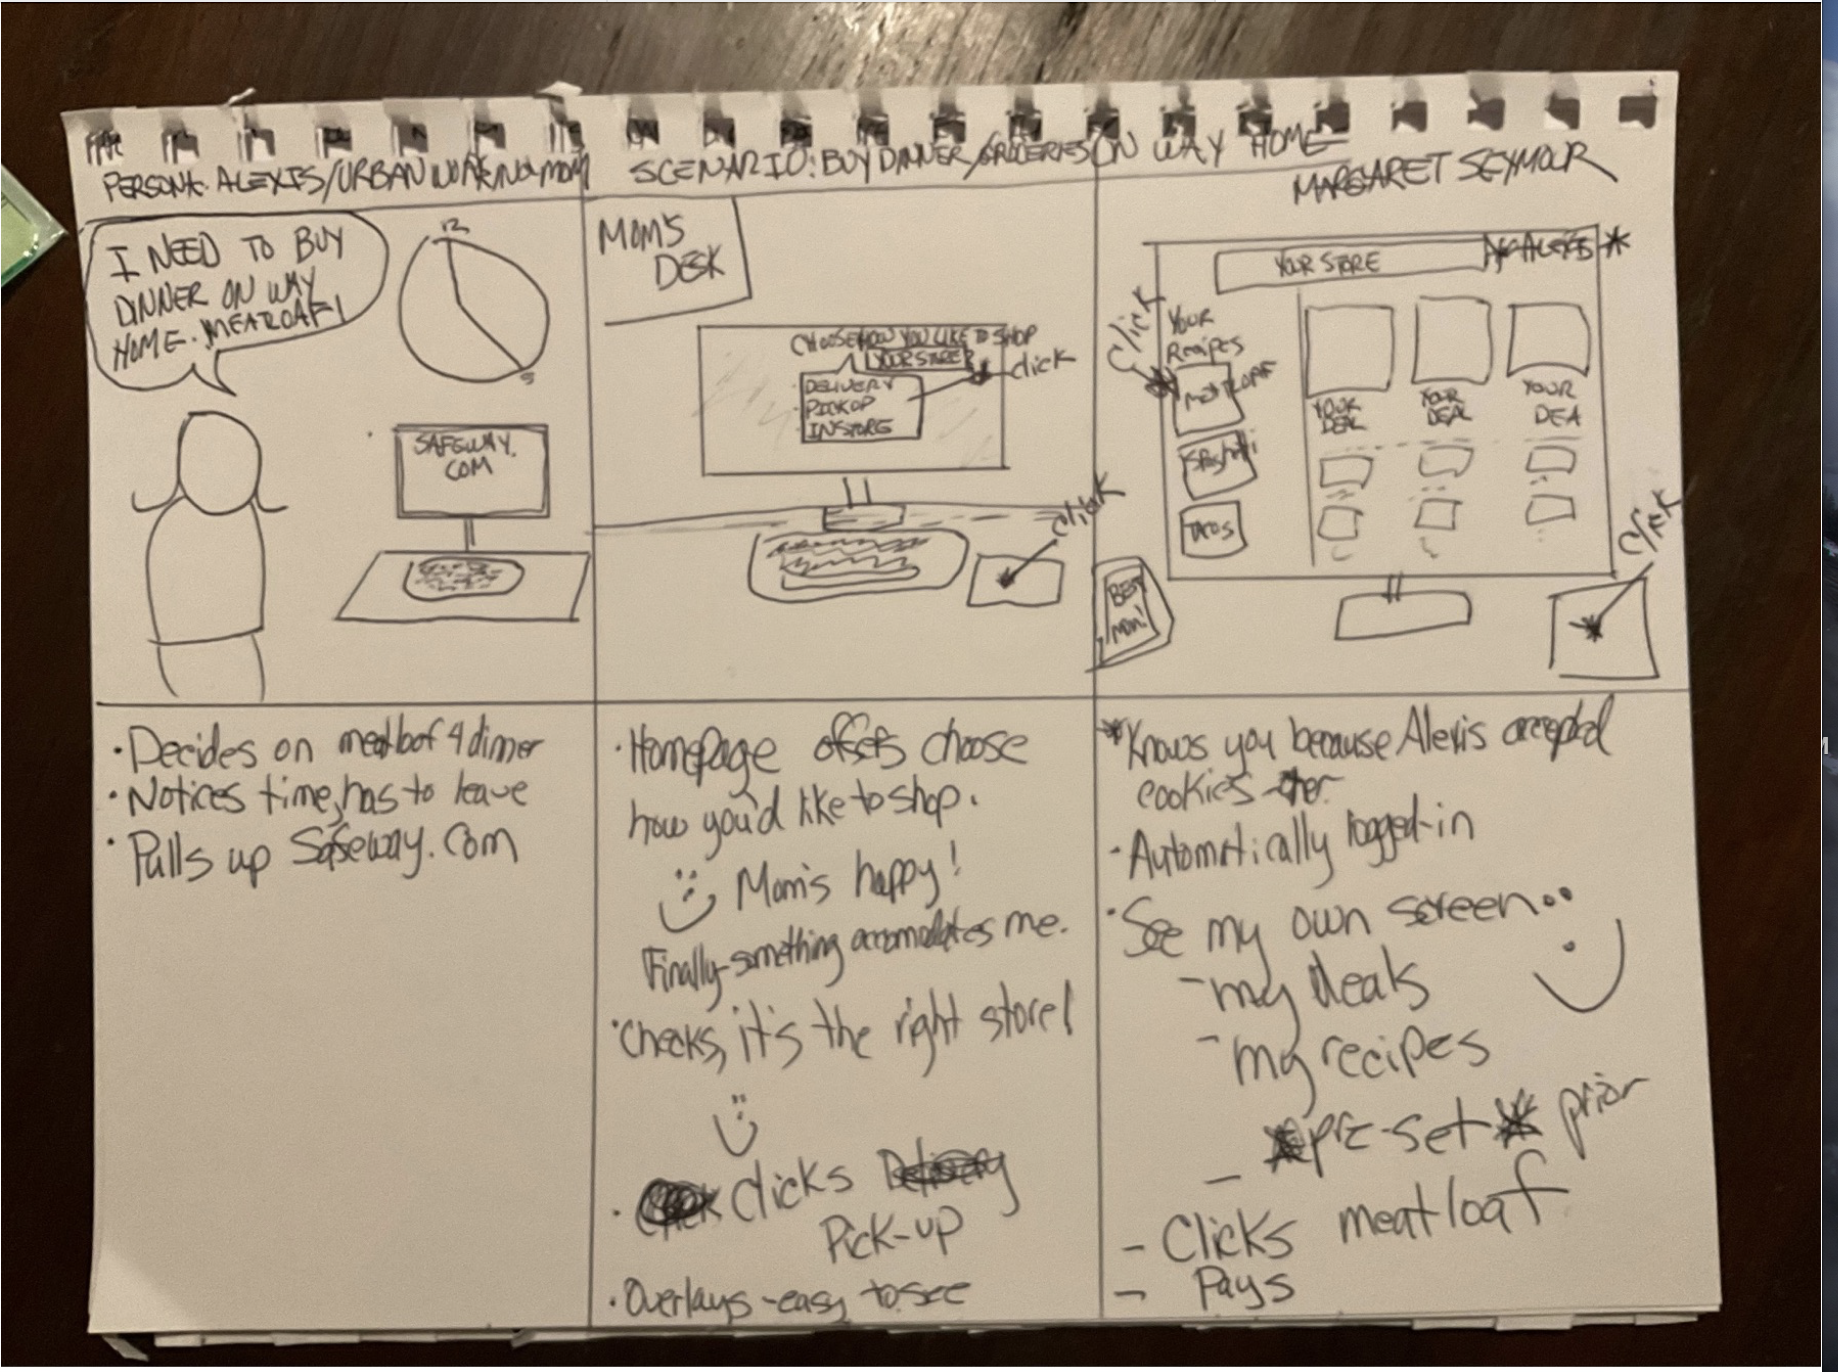 PERSONA: ALEXIS/URBAN WORKING MOM
SCENARIO: BUY DINNER/GROCERIES ON WAY HOME
MARGARET SEYMOUR
I NEED TO BUY
DINNER ON WAY
HOME. MEATLOAF!
12
5
SAFEWAY.
COM
MOM'S
DESK
CHOOSE HOW YOU LIKE TO SHOP
YOUR STORE?
click
DELIVERY
PICKUP
INSTORE
click
YOUR STORE
ALEXIS *
Click
YOUR
Recipes
MEATLOAF
Spaghetti
TACOS
YOUR
DEAL
YOUR
DEAL
YOUR
DEA
Click
BEST
MOM!
• Decides on meatloaf 4 dinner
• Notices time, has to leave
• Pulls up Safeway.com
• Homepage offers choose
how you'd like to shop.
Mom's happy!
Finally-something accomodates me.
• Checks, it's the right store!
• Clicks Delivery
Pick-up
• Overlays - easy to see
* Knows you because Alexis accepted
cookies
• Automatically logged-in
• See my own screen..
- my deals
- my recipes
* pre-set * prior
- Clicks meatloaf
- Pays